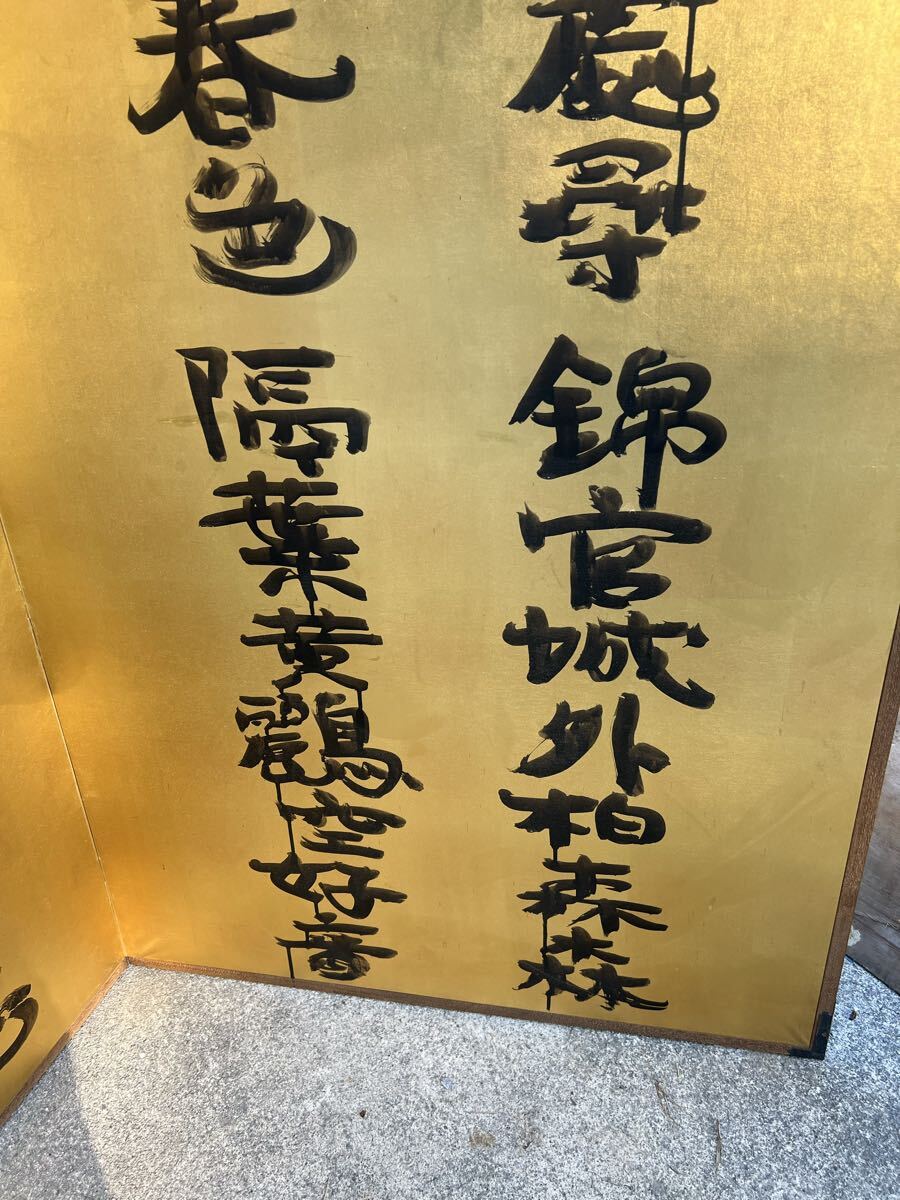 處尋錦官城外柏森森
春色隔葉黄鸝空好音